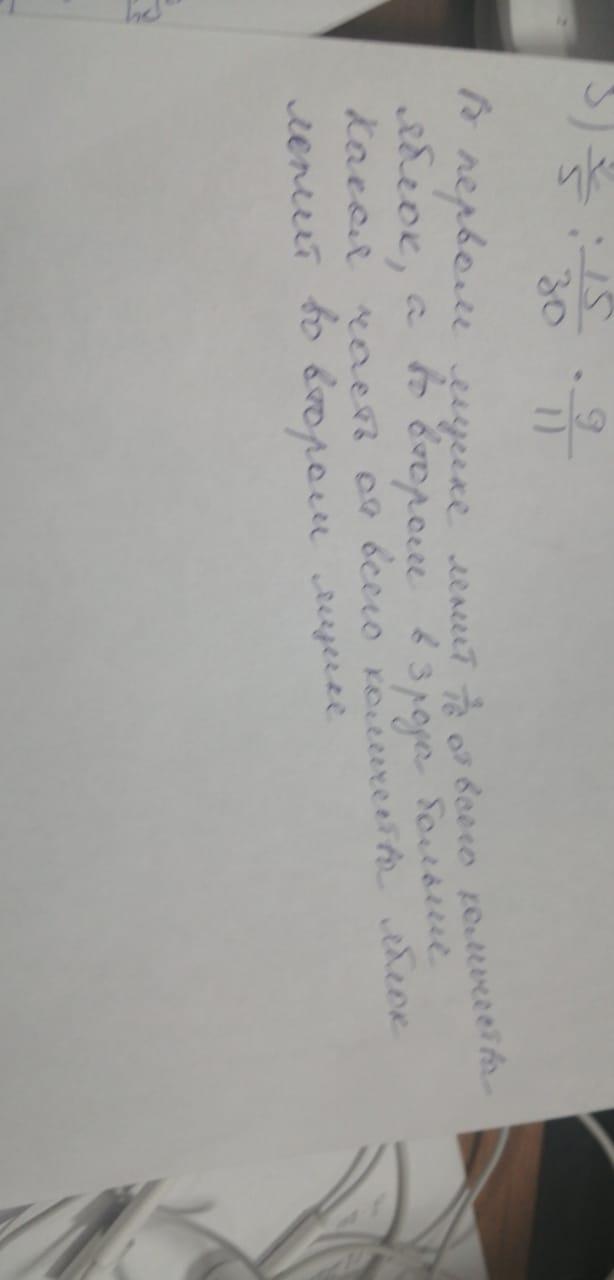 3) : 15/30 · 9/11
В первом ящике лежит от всего количества
яблок, а во втором в 3 раза больше
Какая часть от всего количества яблок
лежит во втором ящике